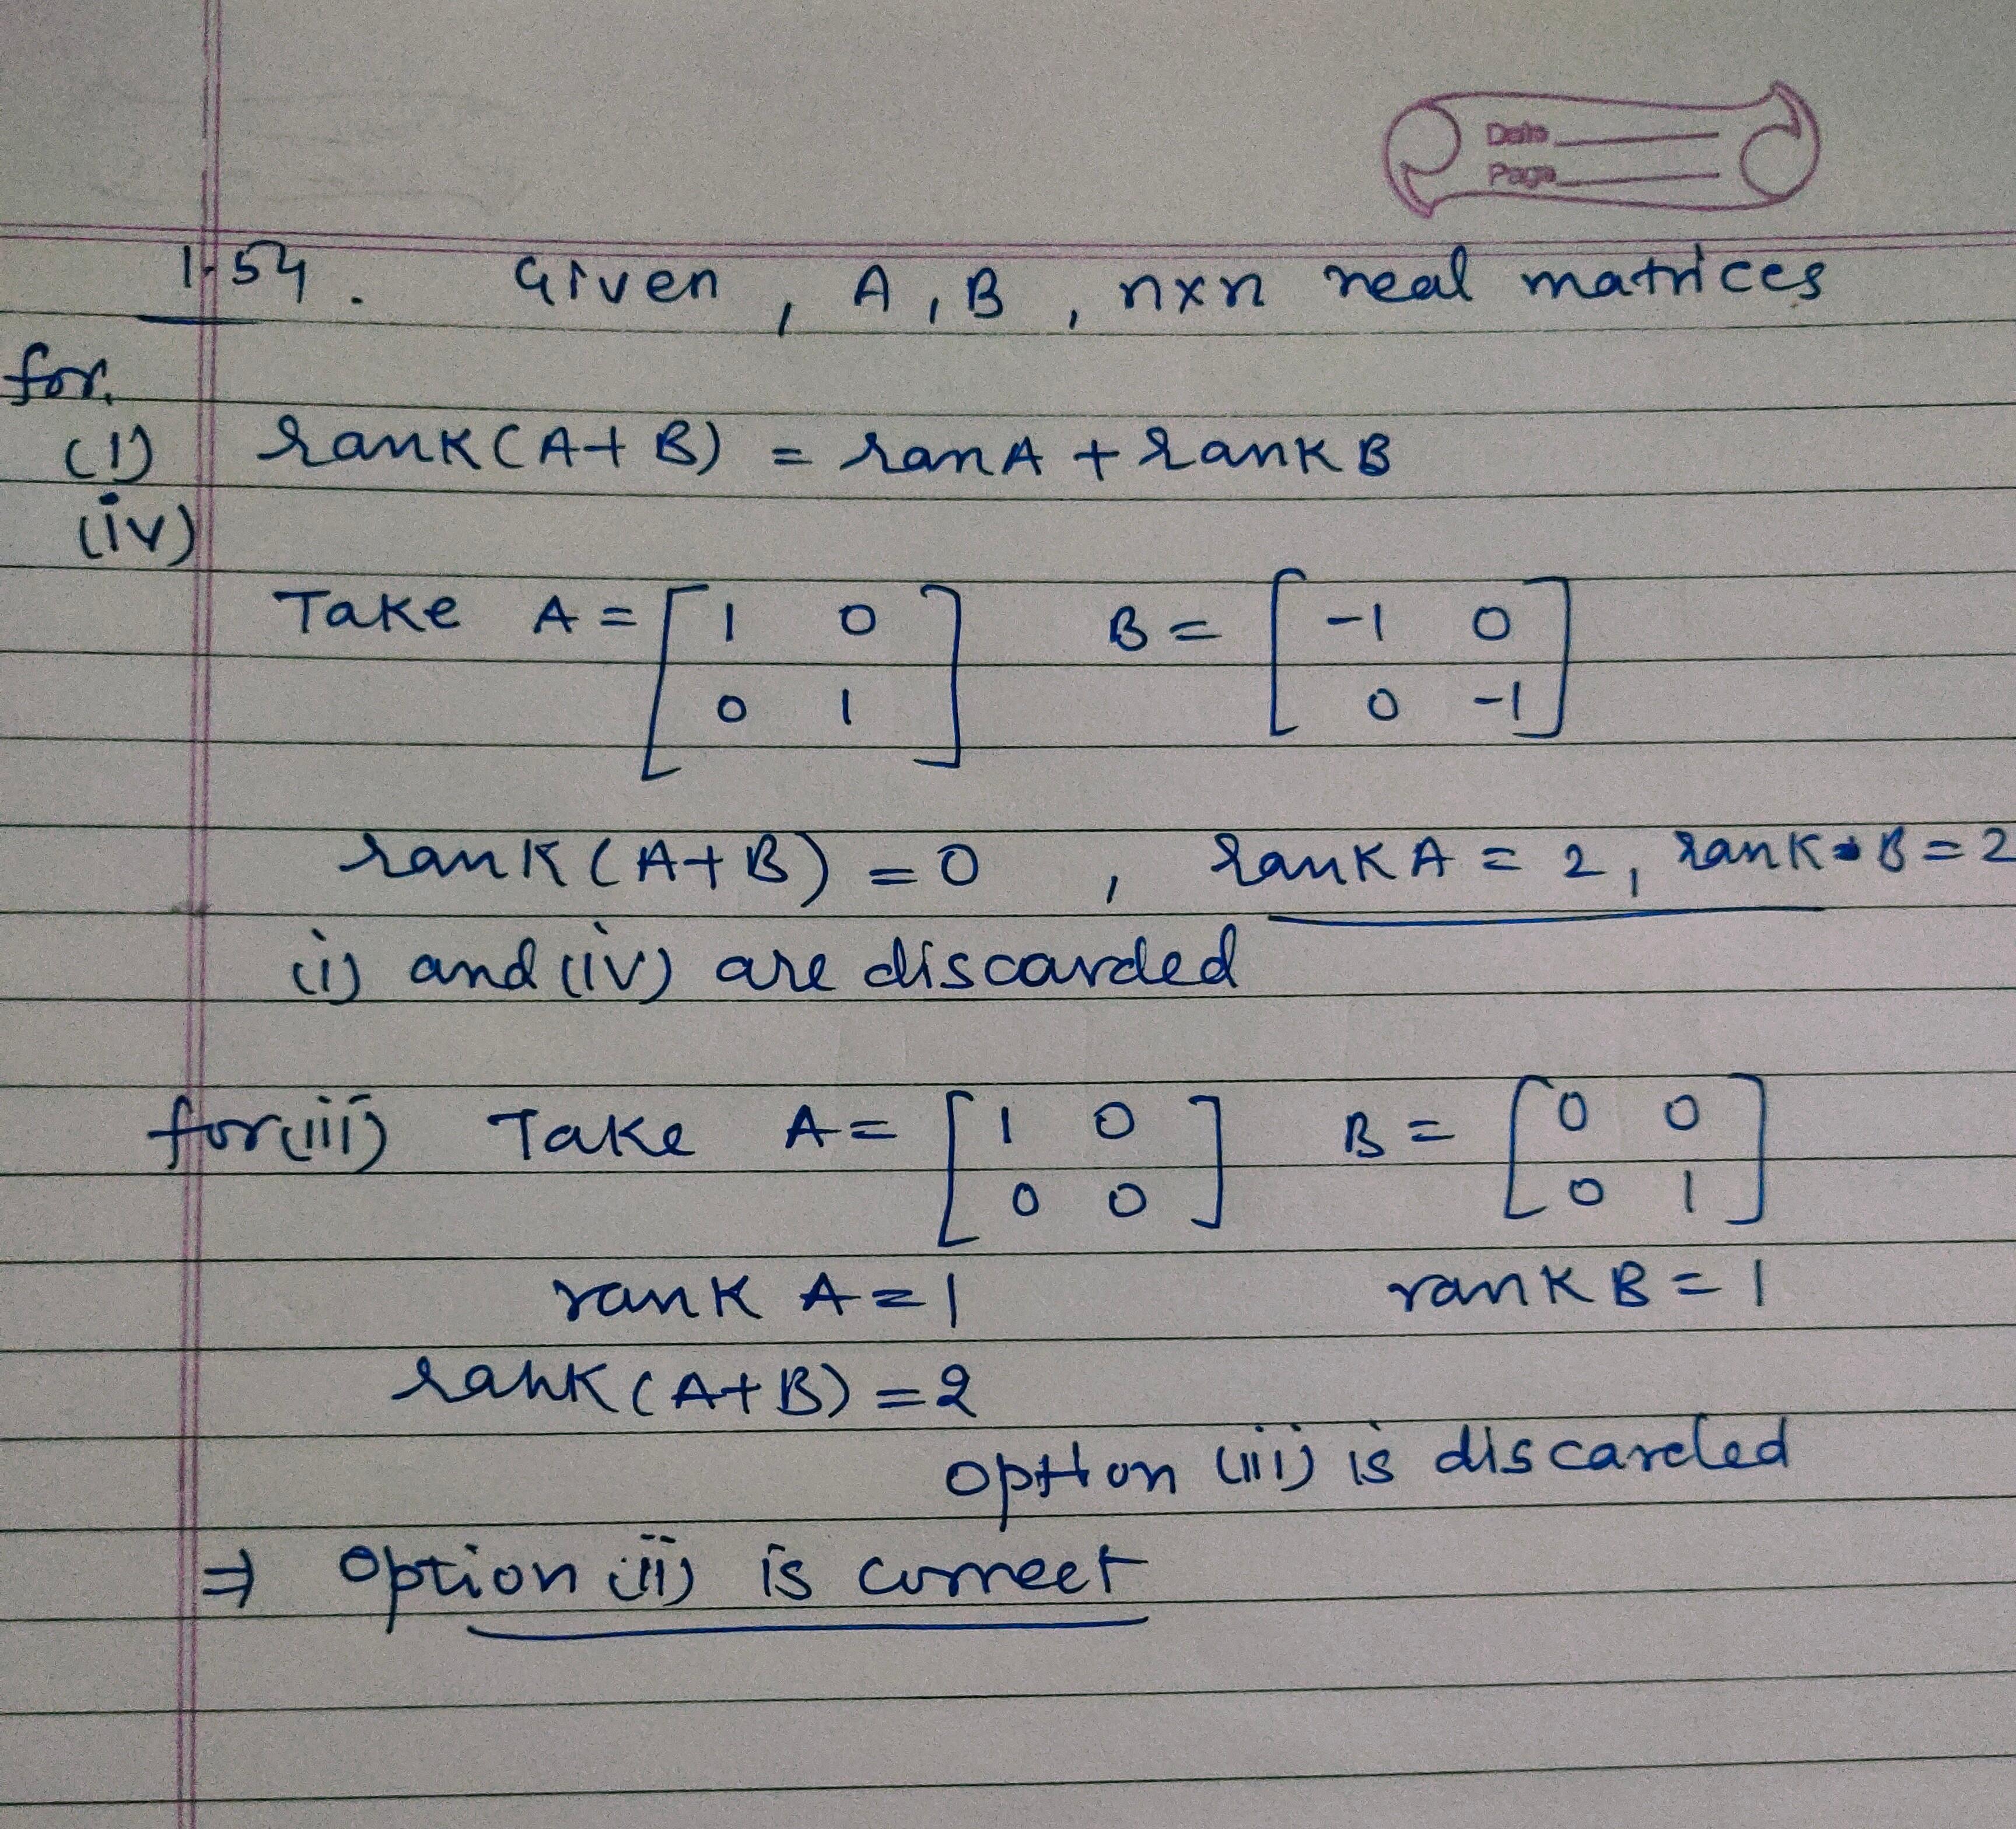 Date
Page
1.54. Given, A, B, nxn real matrices
for
(i) rank(A+B) = ranA + rank B
(iv)
Take A = [ 1 0 B = [ -1 0
0 1 ] 0 -1 ]
rank(A+B) = 0 , rank A = 2, rank B = 2
(i) and (iv) are discarded
for (iii) Take A = [ 1 0 B = [ 0 0
0 0 ] 0 1 ]
rank A = 1 rank B = 1
rank(A+B) = 2
option (iii) is discarded
⇒ option (ii) is correct